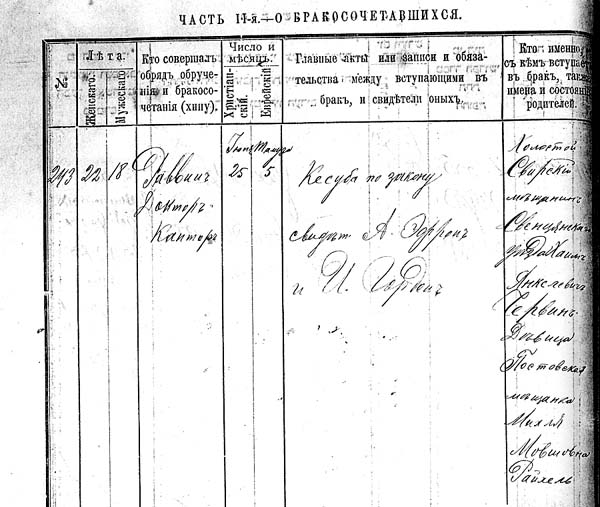 ЧАСТЬ II-я.—О БРАКОСОЧЕТАВШИХСЯ.
№
Лѣта.
Женскаго.
Мужескаго.
Кто совершалъ
обрядъ обруче-
нія и бракосо-
четанія (хину).
Число и
мѣсяцъ.
Христіан-
скій.
Еврейскій.
Главные акты или записи и обяза-
тельства между вступающими въ
бракъ, и свидѣтели оныхъ.
Кто именно
съ кѣмъ вступает
въ бракъ, также
имена и состояніе
родителей.
243
22
18
Раввинъ
Докторъ
Канторъ
25
5
Кесуба по закону
свидѣт А. Эфронъ
и И. Гордонъ
Холостой
Свирскій
мѣщанинъ
Свенцянска
Янкелевичъ
Червинъ
Дѣвица
Постовская
мѣщанка
Михля
Мовшовна
Райхель